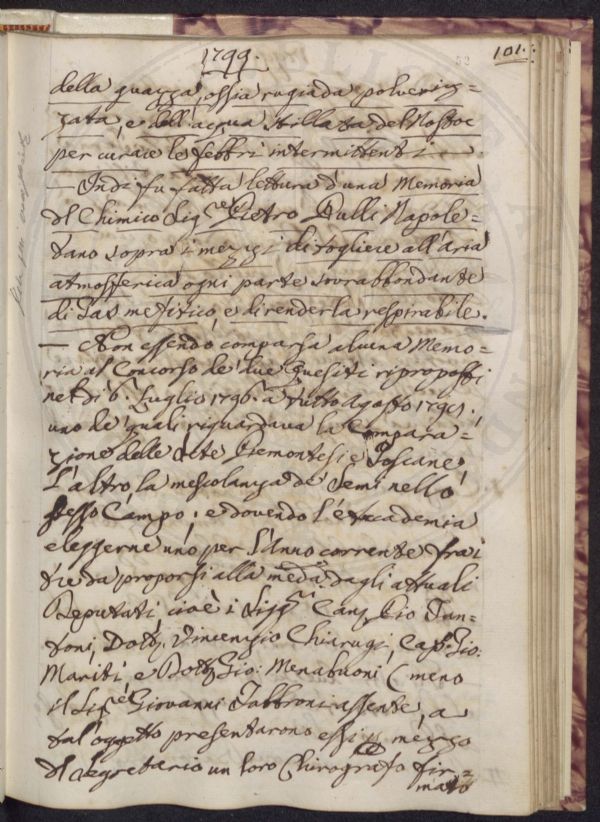 1799.
101.
della guazza, ossia rugiada polveriz=
zata, e dell'acqua stillata del Nostoc
per curare le febbri intermittenti.
— Indi fu fatta lettura d'una Memoria
del Chimico Sig.re Pietro Pulli Napole=
tano sopra i mezzi di togliere all'aria
atmosferica ogni parte sovrabbondante
di Gas mefitico, e di renderla respirabile.
— Non essendo comparsa alcuna Memo=
ria al Concorso de' due Quesiti riproposti
nel dì 6. Luglio 1796. a tutto Agosto
uno de' quali riguardava la Compara=
zione delle Sete Piemontesi e Toscane,
L'altro la mescolanza de' Semi nello
stesso Campo; e dovendo l'Accademia
eleggerne uno per l'Anno corrente fra i
tre da proporsi alla med.a dagli attuali
Deputati, cioè i Sigg.ri Canco Pio Fan=
toni, Dott. Vincenzio Chiarugi, Cap. Gio:
Mariti, e Dott. Gio: Menabuoni (meno
il Sig.re Giovanni Fabbroni assente, a
tal'oggetto presentarono essi p. mezzo
del Segretario un loro Chirografo fir=
mato